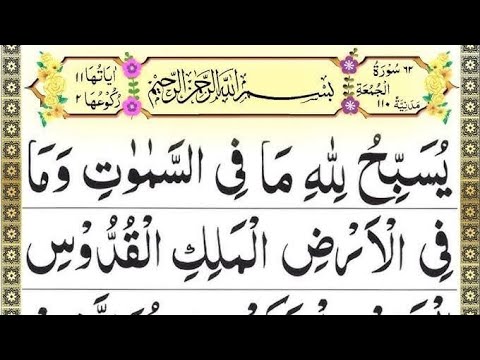 ٦٢ سُوْرَةُ
الْجُمُعَةِ
مَدَنِيَّةٌ ١١٠
بِسْمِ اللّٰهِ الرَّحْمٰنِ الرَّحِيْمِ
اٰيَاتُهَا ١١
رُكُوْعُهَا ٢
يُسَبِّحُ لِلّٰهِ مَا فِى السَّمٰوٰتِ وَمَا
فِى الْاَرْضِ الْمَلِكِ الْقُدُّوْسِ